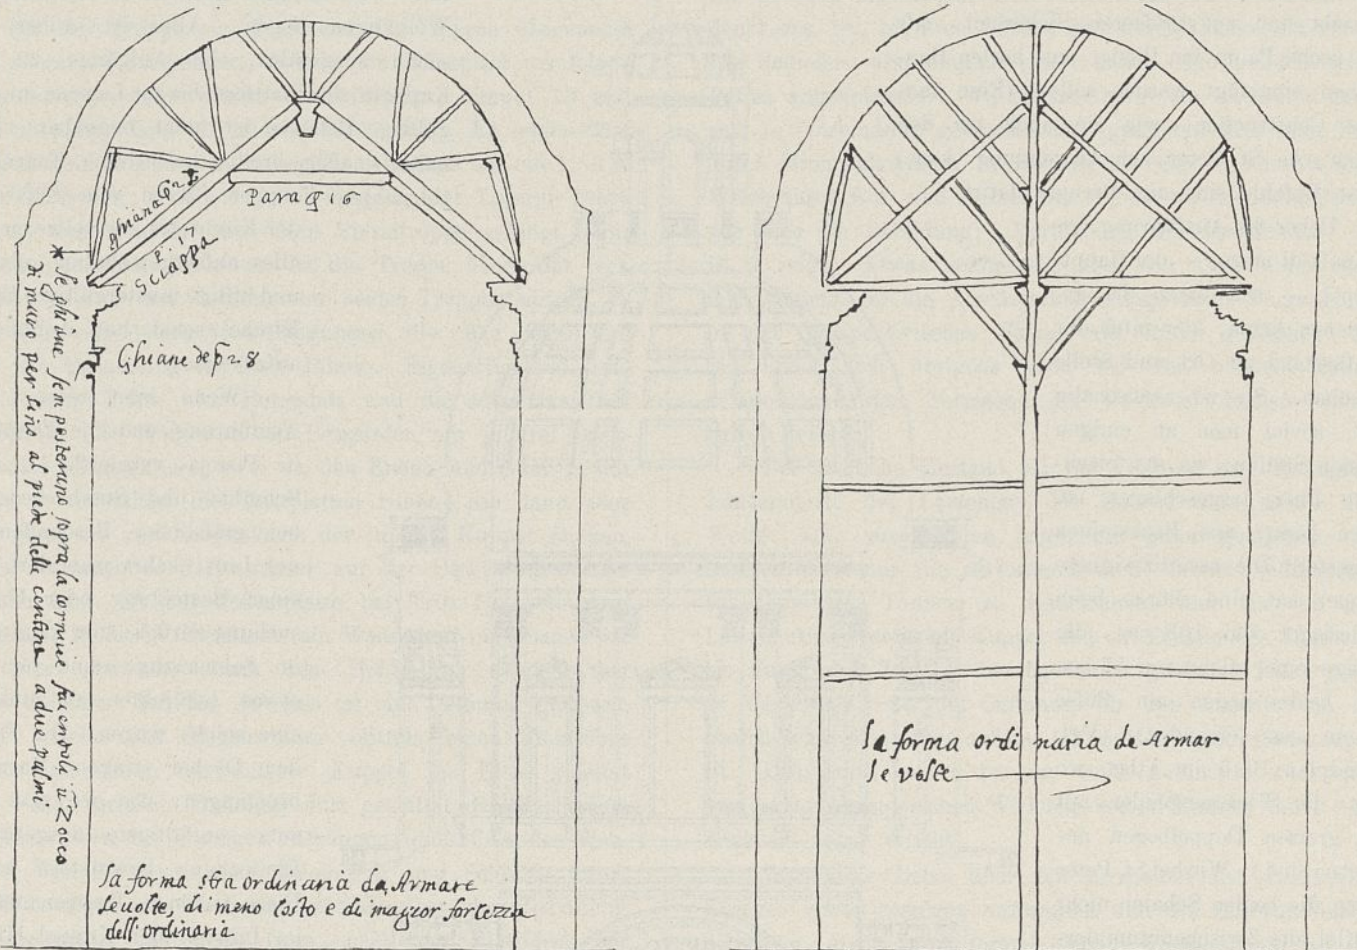 Ghiana G 2 8
Para G 16
P. 17
Sciappa
Ghiane de p 2. 8
* Le ghiane sem posteranno sopra la cornice facendoli il Zocco
di muro per tiro al piede delle centine a due palmi
la forma stra ordinaria da Armare
le volte, di meno costo e di maggior fortezza
dell' ordinaria
la forma ordinaria de Armar
le volte